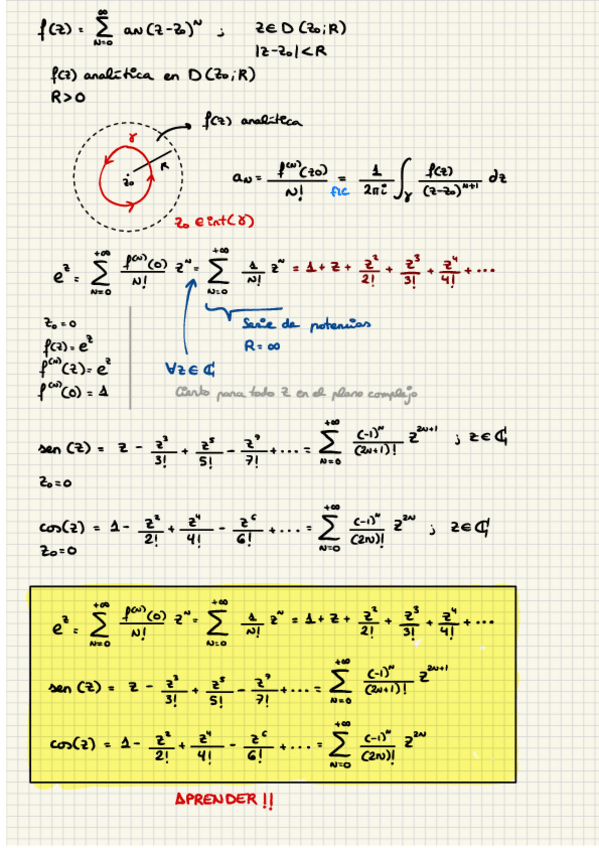 f(z) = ∑_{N=0}^{∞} aN (z-z₀)^N ; z ∈ D(z₀;R)
|z-z₀| < R
f(z) analítica en D(z₀;R)
R > 0
f(z) analítica
γ
R
z₀
z₀ ∈ int(γ)
aN = f^{(N)}(z₀)/N! = 1/(2πi) ∫_γ f(z)/(z-z₀)^{N+1} dz
FIC
e^z = ∑_{N=0}^{+∞} f^{(N)}(0)/N! z^N = ∑_{N=0}^{+∞} 1/N! z^N = 1 + z + z²/2! + z³/3! + z⁴/4! + ...
Serie de potencias
R = ∞
∀z ∈ ℂ
Cierto para todo z en el plano complejo
z₀ = 0
f(z) = e^z
f^{(N)}(z) = e^z
f^{(N)}(0) = 1
sen(z) = z - z³/3! + z⁵/5! - z⁷/7! + ... = ∑_{N=0}^{+∞} (-1)^N/(2N+1)! z^{2N+1} ; z ∈ ℂ
z₀ = 0
cos(z) = 1 - z²/2! + z⁴/4! - z⁶/6! + ... = ∑_{N=0}^{+∞} (-1)^N/(2N)! z^{2N} ; z ∈ ℂ
z₀ = 0
e^z = ∑_{N=0}^{+∞} f^{(N)}(0)/N! z^N = ∑_{N=0}^{+∞} 1/N! z^N = 1 + z + z²/2! + z³/3! + z⁴/4! + ...
sen(z) = z - z³/3! + z⁵/5! - z⁷/7! + ... = ∑_{N=0}^{+∞} (-1)^N/(2N+1)! z^{2N+1}
cos(z) = 1 - z²/2! + z⁴/4! - z⁶/6! + ... = ∑_{N=0}^{+∞} (-1)^N/(2N)! z^{2N}
APRENDER !!